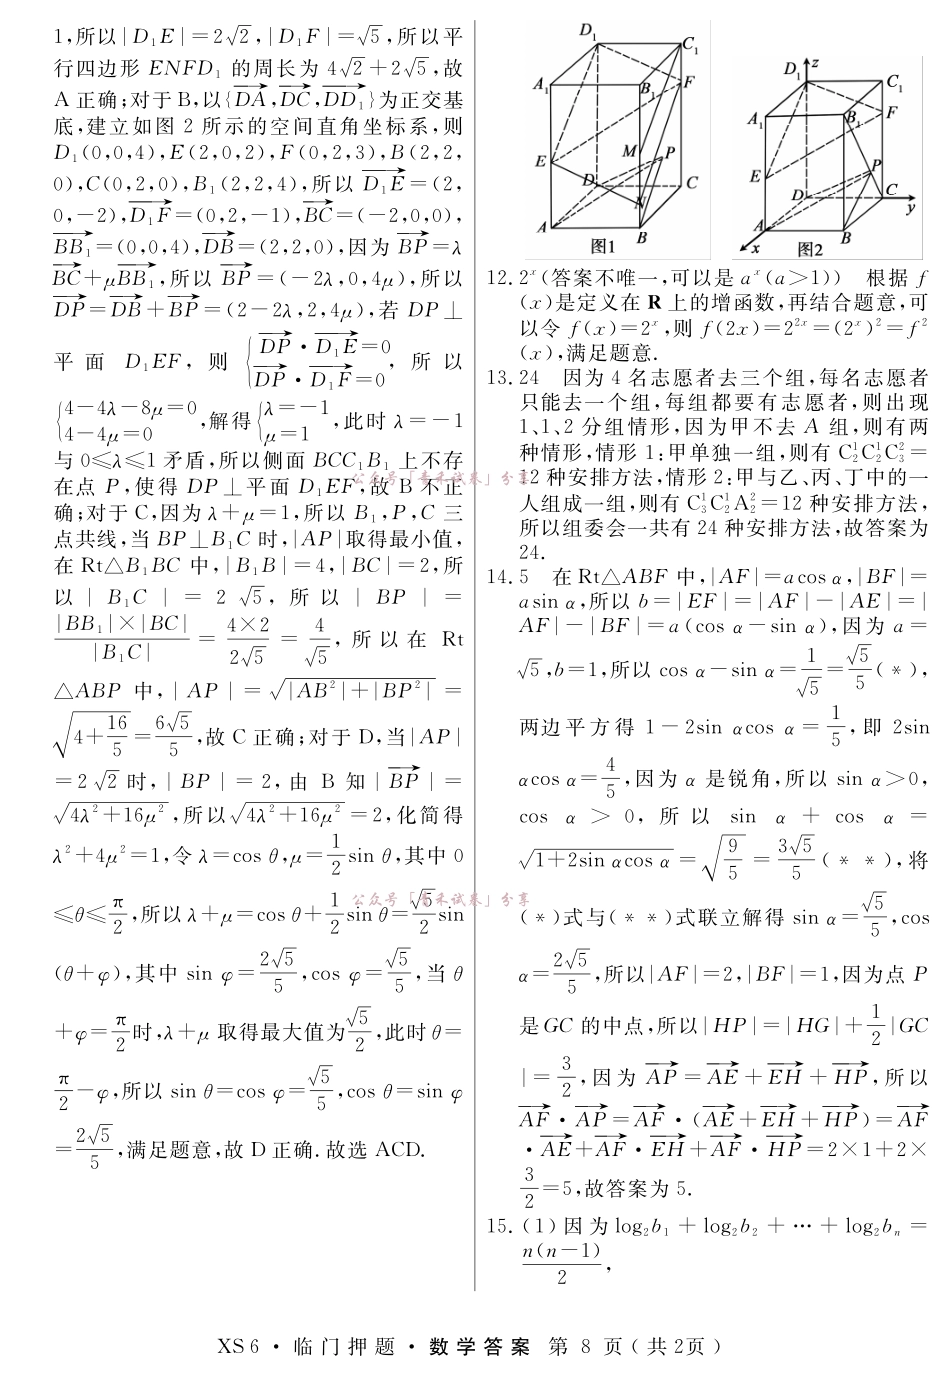 1,所以|D₁E|=2√2,|D₁F|=√5,所以平
行四边形 ENFD₁ 的周长为 4√2+2√5,故
A 正确;对于 B,以{DA→,DC→,DD₁→}为正交基
底,建立如图 2 所示的空间直角坐标系,则
D₁(0,0,4),E(2,0,2),F(0,2,3),B(2,2,
0),C(0,2,0),B₁(2,2,4),所以 D₁E→=(2,
0,-2),D₁F→=(0,2,-1),BC→=(-2,0,0),
BB₁→=(0,0,4),DB→=(2,2,0),因为 BP→=λ
BC→+μBB₁→,所以 BP→=(-2λ,0,4μ),所以
DP→=DB→+BP→=(2-2λ,2,4μ),若 DP⊥
平面 D₁EF,则 {DP→·D₁E→=0, DP→·D₁F→=0, 所以
{4-4λ-8μ=0, 4-4μ=0 ,解得{λ=-1, μ=1 ,此时 λ=-1
与 0≤λ≤1 矛盾,所以侧面 BCC₁B₁ 上不存
在点 P,使得 DP⊥平面 D₁EF,故 B 不正
确;对于 C,因为 λ+μ=1,所以 B₁,P,C 三
点共线,当 BP⊥B₁C 时,|AP|取得最小值,
在 Rt△B₁BC 中,|B₁B|=4,|BC|=2,所
以 |B₁C| = 2√5, 所以 |BP| =
|BB₁|×|BC|/|B₁C| = 4×2/2√5 = 4/√5, 所以在 Rt
△ABP 中,|AP|=√(|AB²|+|BP²|) =
√(4+16/5)=6√5/5,故 C 正确;对于 D,当|AP|
=2√2 时,|BP|=2,由 B 知|BP→|=
√(4λ²+16μ²),所以√(4λ²+16μ²)=2,化简得
λ²+4μ²=1,令 λ=cos θ,μ=1/2 sin θ,其中 0
≤θ≤π/2,所以 λ+μ=cos θ+1/2 sin θ=√5/2 sin
(θ+φ),其中 sin φ=2√5/5,cos φ=√5/5,当 θ
+φ=π/2时,λ+μ 取得最大值为√5/2,此时 θ=
π/2-φ,所以 sin θ=cos φ=√5/5,cos θ=sin φ
=2√5/5,满足题意,故 D 正确.故选 ACD.
D₁
C₁
A₁
B₁
F
E
M
P
D
C
N
A
B
图1
D₁
z
C₁
A₁
B₁
F
E
P
D
C
y
A
x
B
图2
12.2ˣ(答案不唯一,可以是 aˣ(a>1)) 根据 f
(x)是定义在 R 上的增函数,再结合题意,可
以令 f(x)=2ˣ,则 f(2x)=2²ˣ=(2ˣ)²=f²
(x),满足题意.
13.24 因为 4 名志愿者去三个组,每名志愿者
只能去一个组,每组都要有志愿者,则出现
1、1、2 分组情形,因为甲不去 A 组,则有两
种情形,情形 1:甲单独一组,则有 C₂¹C₂¹C₃²=
12 种安排方法,情形 2:甲与乙、丙、丁中的一
人组成一组,则有 C₃¹C₂¹A₂²=12 种安排方法,
所以组委会一共有 24 种安排方法,故答案为
24.
14.5 在 Rt△ABF 中,|AF|=acos α,|BF|=
asin α,所以 b=|EF|=|AF|-|AE|=|
AF|-|BF|=a(cos α-sin α),因为 a=
√5,b=1,所以 cos α-sin α=1/√5=√5/5(*),
两边平方得 1-2sin αcos α=1/5,即 2sin
αcos α=4/5,因为 α 是锐角,所以 sin α>0,
cos α > 0, 所以 sin α + cos α =
√(1+2sin αcos α)=√(9/5)=3√5/5(**),将
(*)式与(**)式联立解得 sin α=√5/5,cos
α=2√5/5,所以|AF|=2,|BF|=1,因为点 P
是GC 的中点,所以|HP|=|HG|+1/2|GC
|=3/2,因为 AP→=AE→+EH→+HP→,所以
AF→·AP→=AF→·(AE→+EH→+HP→)=AF→
·AE→+AF→·EH→+AF→·HP→=2×1+2×
3/2=5,故答案为 5.
15.(1)因为log₂b₁+log₂b₂+…+log₂bₙ=
n(n-1)/2,
公众号「青禾试卷」分享
公众号「青禾试卷」分享
XS6·临门押题·数学答案 第 8 页(共2页)